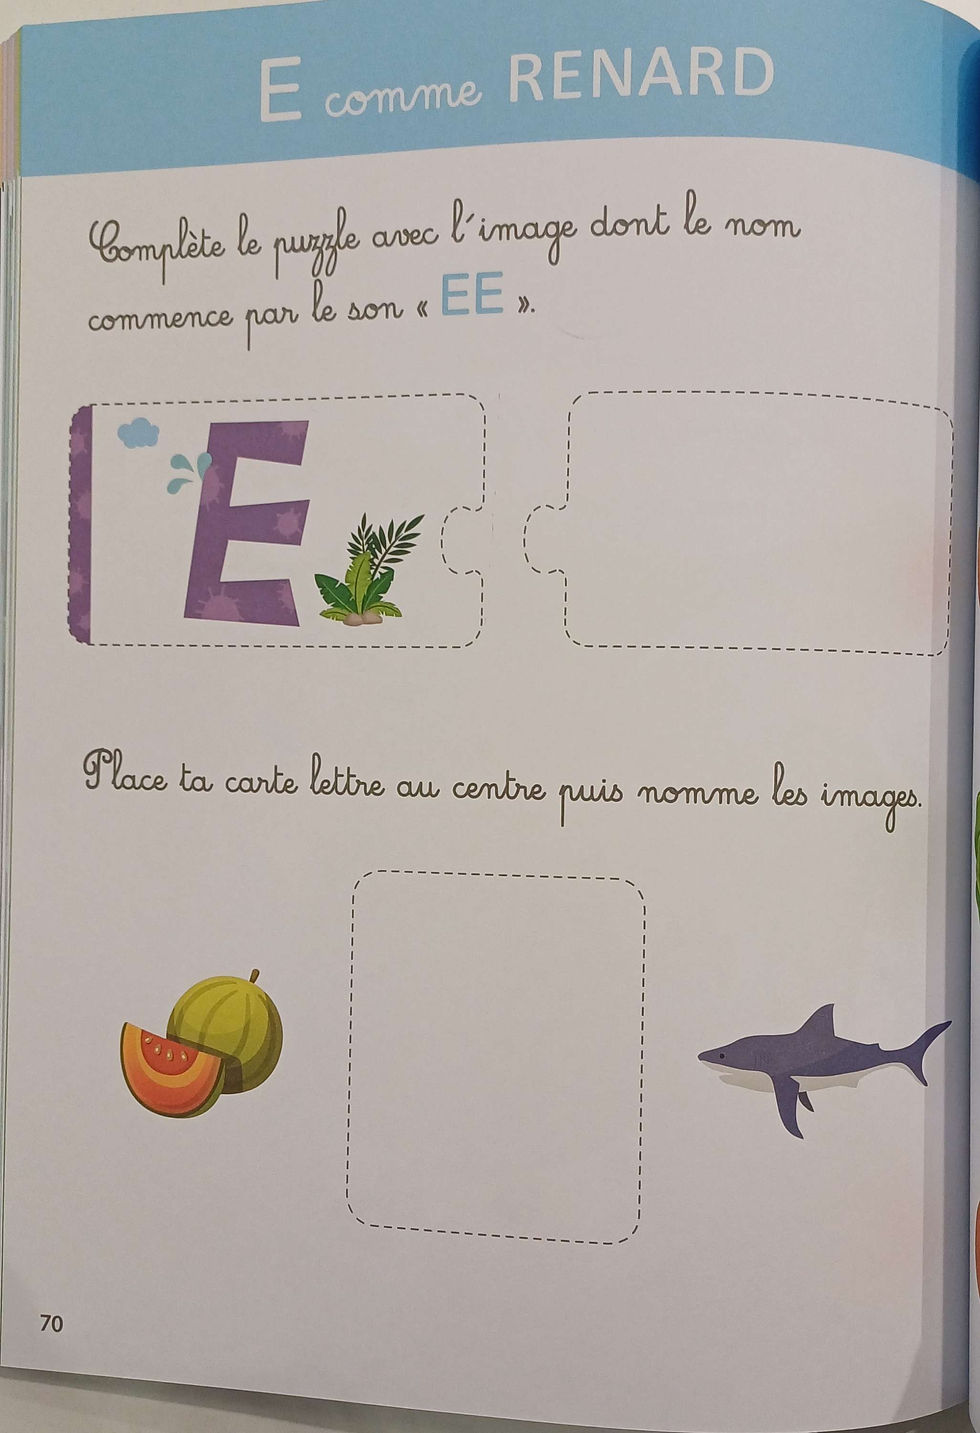 E comme RENARD
Complète le puzzle avec l'image dont le nom
commence par le son « EE ».
E
Place ta carte lettre au centre puis nomme les images.
70